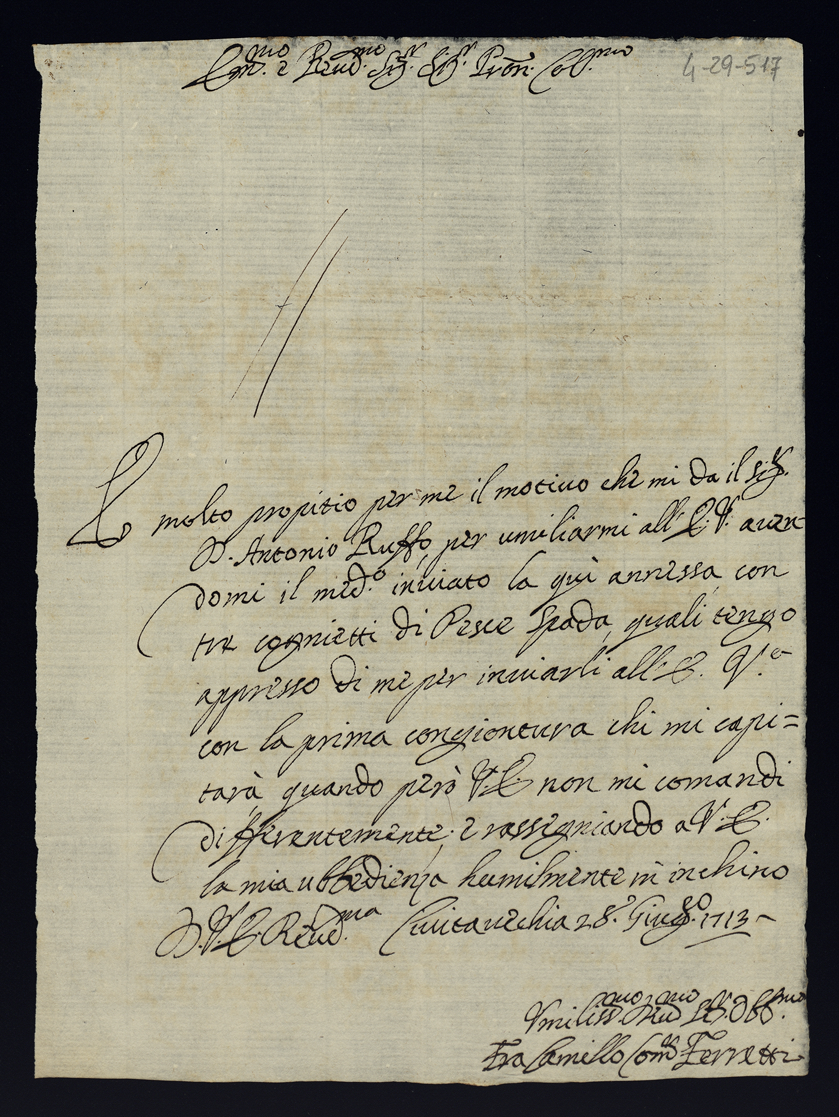 Em.mo e Reud.mo Sig.r Sig.r Pron. Col.mo
4-29-517
E molto propitio per me il motiuo che mi da il Sig.r
D. Antonio Ruffo, per umiliarmi all' E. V. auen
domi il med.o inuiato la quì annessa, con
tre cognietti di Pesce Spada, quali tengo
appresso di me per inuiarli all' E. V.a
con la prima congiontura chi mi capi=
tarà quando però V. E. non mi comandi
differentemente; e rassegniando a V. E.
la mia ubbedienza humilmente m' inchino
D. V. E. Reud.ma Ciuitauechia 28. Giug.o 1713
Vmiliss.mo Deu.mo Obb.mo
Fra Camillo Com.r Ferretti